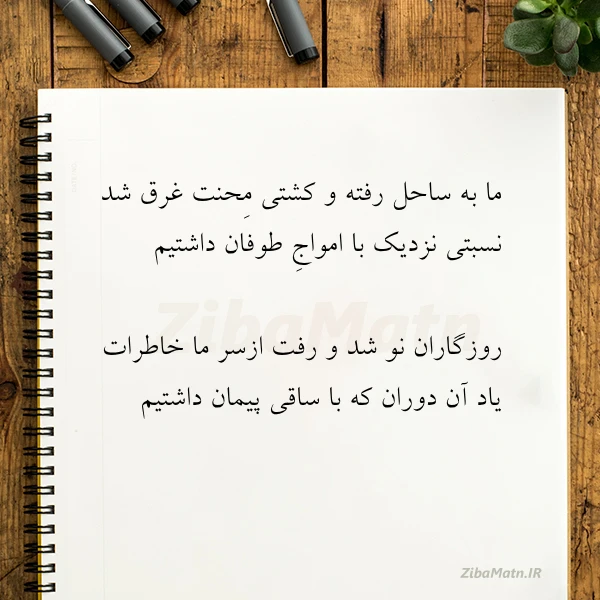 ما به ساحل رفته و کشتی مِحنت غرق شد
نسبتی نزدیک با امواجِ طوفان داشتیم
روزگاران نو شد و رفت ازسر ما خاطرات
یاد آن دوران که با ساقی پیمان داشتیم
ZibaMatn
ZibaMatn.IR